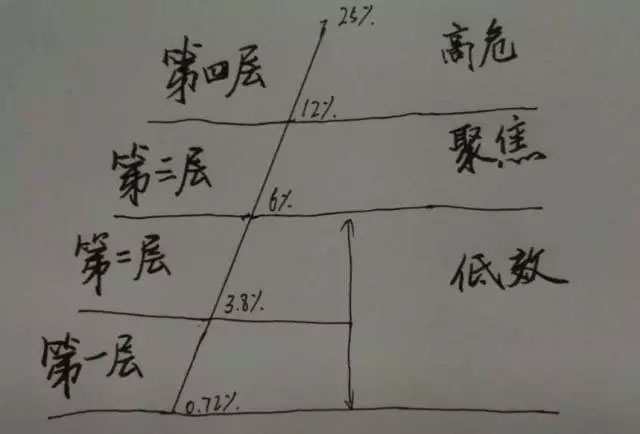 25%
第四层 高危
12%
第三层 聚焦
6%
第二层 低效
3.8%
第一层
0.72%